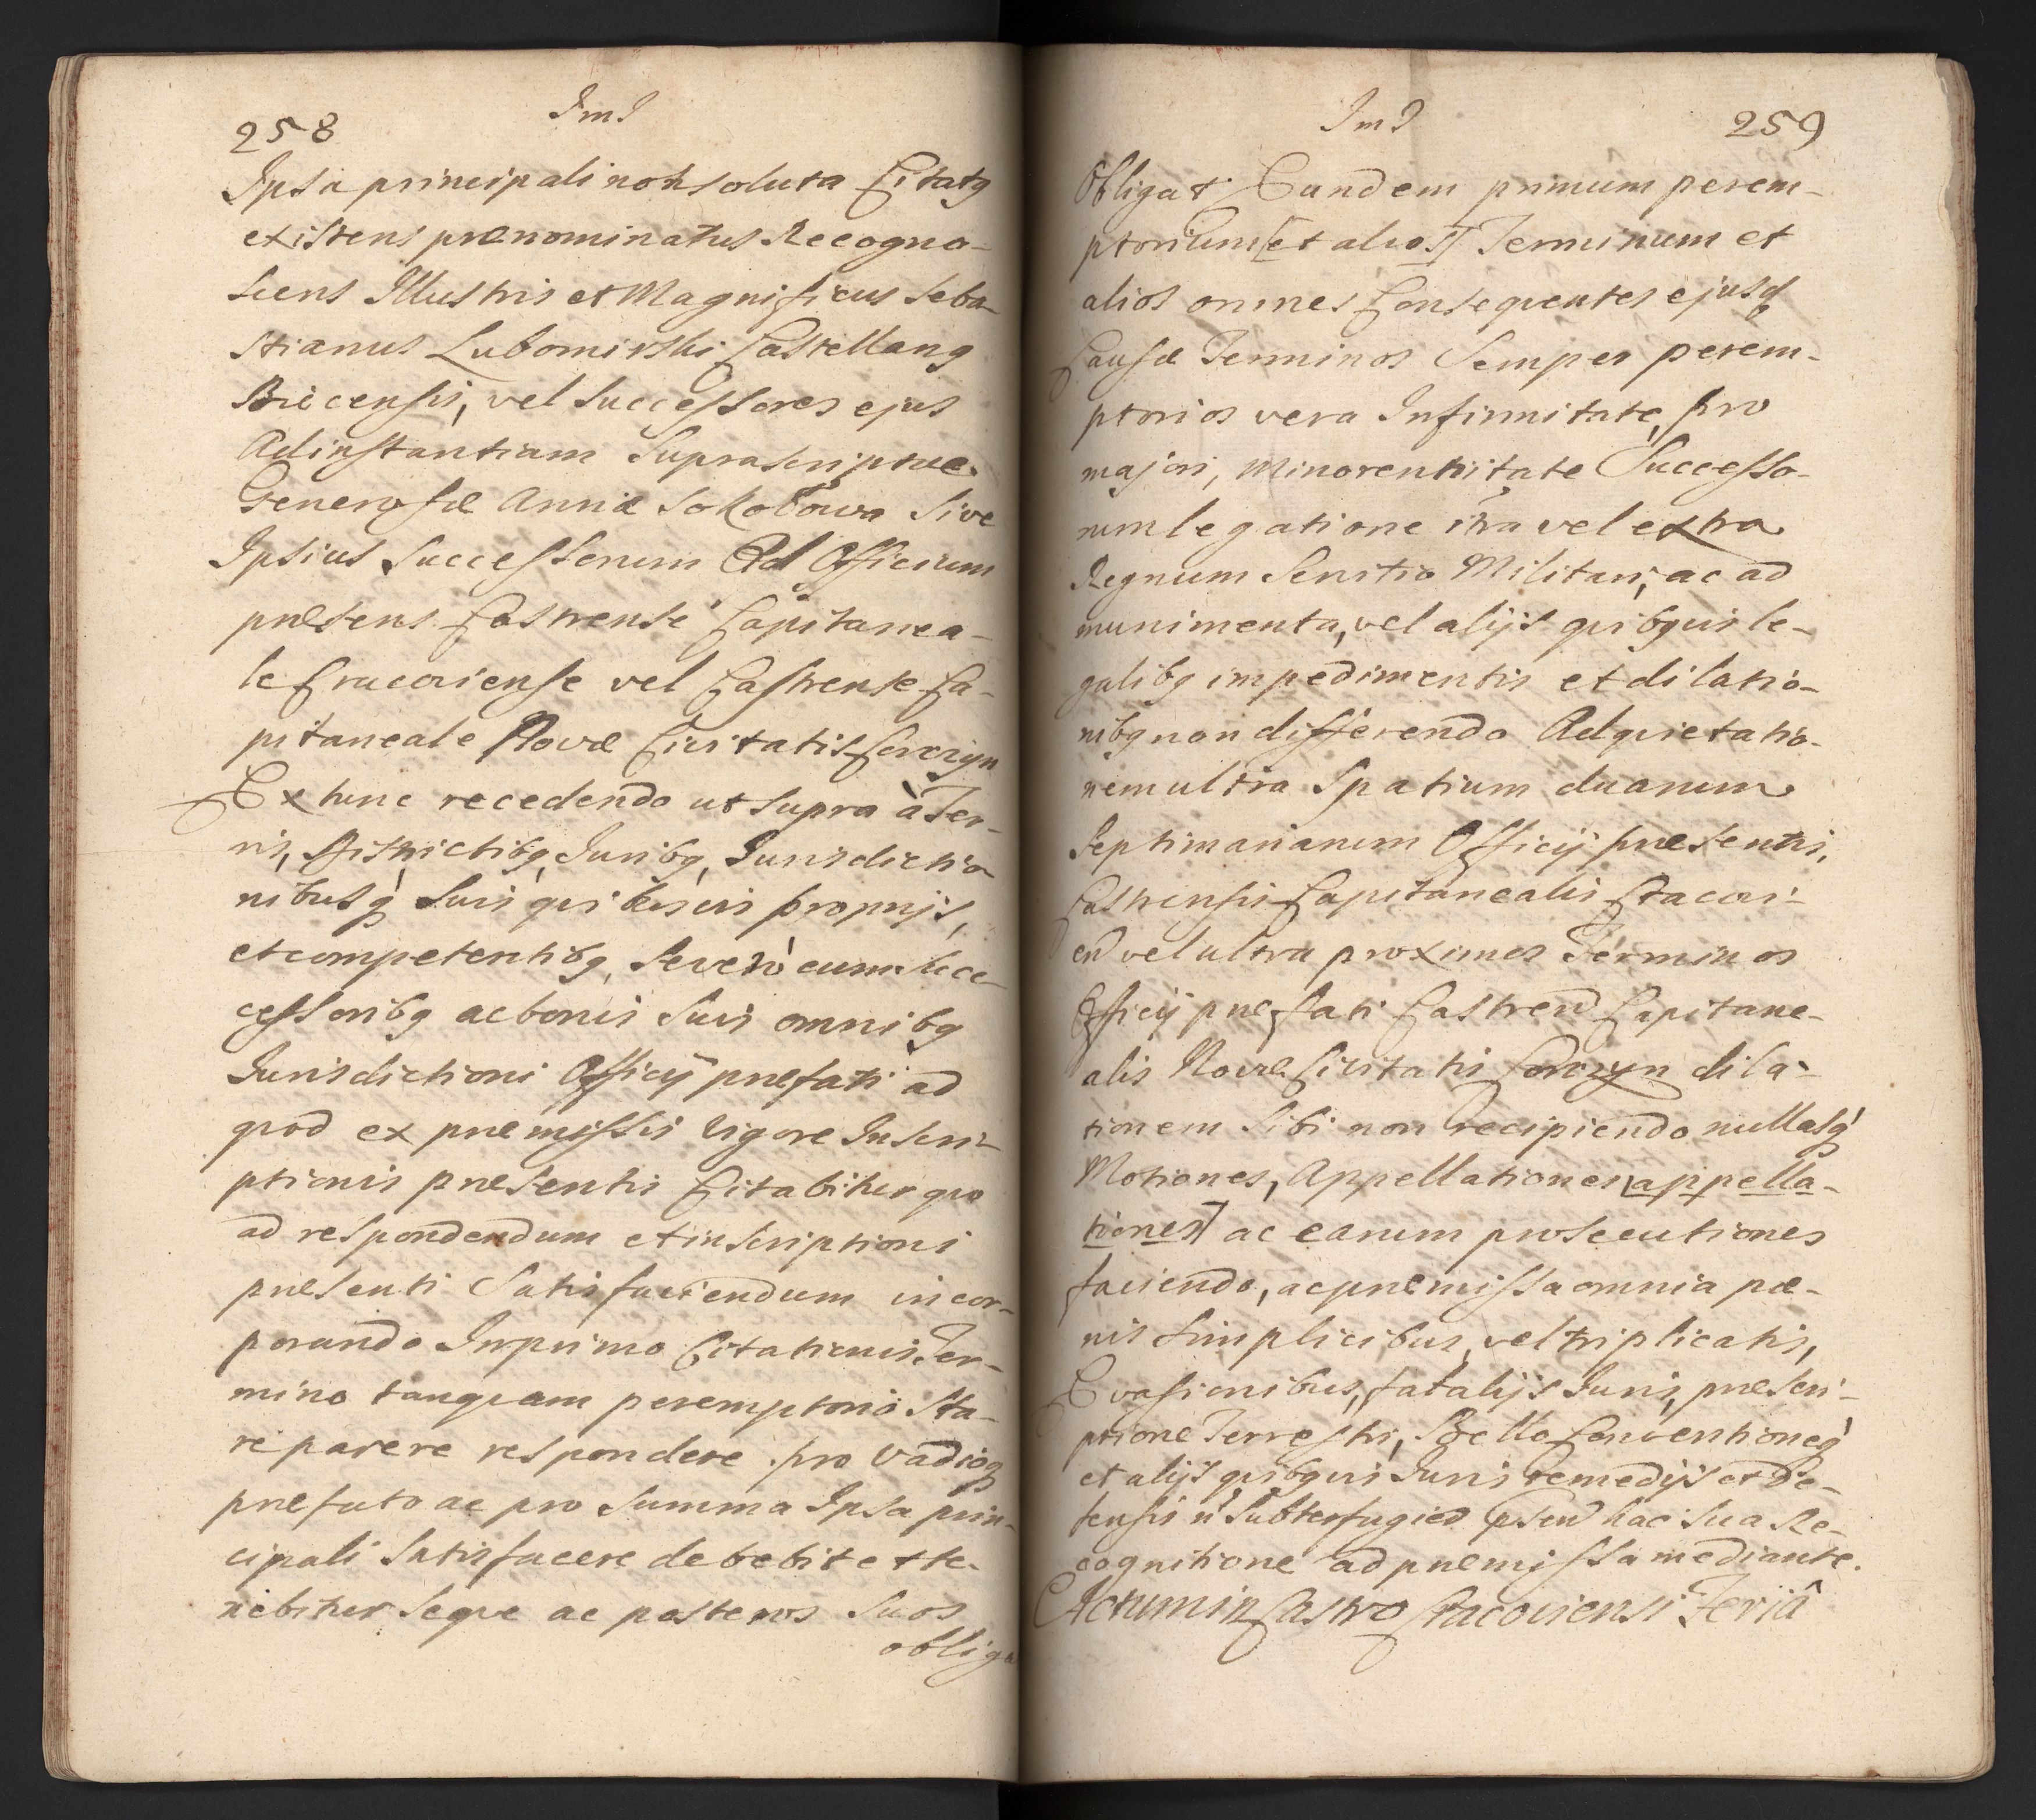 258
ImI
Ipsa principali non soluta Citatq
existens prænominatus Recogno-
scens Illustris et Magnificus Seba-
stianus Lubomirski Castellanq
Biecensis, vel Successores ejus
Ad instantiam Suprascriptæ
Generosæ Annæ Sokolowa Sive
Ipsius Successorum Ad Officium
præsens Castrense Capitanea-
le Cracoviense vel Castrense Ca-
pitaneale Novæ Civitatis Corczyn
Ex tunc recedendo ut supra à Ter-
ris, Districtibq, Juribq, Jurisdictio
nibusq suis quibusvis proprijs,
et competentibq, Severò cum Succe-
cessoribq ac bonis suis omnibq
Jurisdictioni Officij præfati ad
quod ex præmissis Vigore Inscri-
ptionis præsentis Citabitur quo
ad respondendum et inscriptioni
præsenti Satisfaciendum incor-
porando In primo Citationis Ter-
mino tanquam peremptorio Sta-
re parere respondere pro Vadioq
præfato ac pro Summa Ipsa prin-
cipali Satisfacere debebit et te-
nebitur Seque ac posteros Suos
obliga
ImI
259
Obligat Eundem primum perem-
ptorium [et alios] Terminum et
alios omnes Consequentes ejusq
Causæ Terminos Semper perem-
ptorios vera Infirmitate, pro
majori, Minorennitate Successo-
rum legatione itra vel extra
Regnum Servitio Militari, ac ad
munimenta, vel alijs quibquis le-
galibq impedimentis et dilatio-
nibq non differendo Ad quietatio-
nem ultra Spatium duarum
Septimanarum Officij præsentis,
Castrensis Capitanealis Cracovi-
en vel ultra proximos Terminos
Officij præfati Castren Capitane-
alis Novæ Civitatis Corczyn dila-
tionem Sibi non recipiendo nullasq
Motiones, Appellationes [appella-
tiones] ac earum prosecutiones
faciendo, ac præmissa omnia pæ-
nis simplicibus, vel triplicatis,
Evasionibus, fatalijs Juris, præscri-
ptione Terrestri, Bello Conventioneq
et alijs quibquis Juris remedijs et De-
fensis n Subterfugied psen hac Sua Re-
cognitione ad præmissa mediante.
Actum in Castro Cracoviensi Feriâ